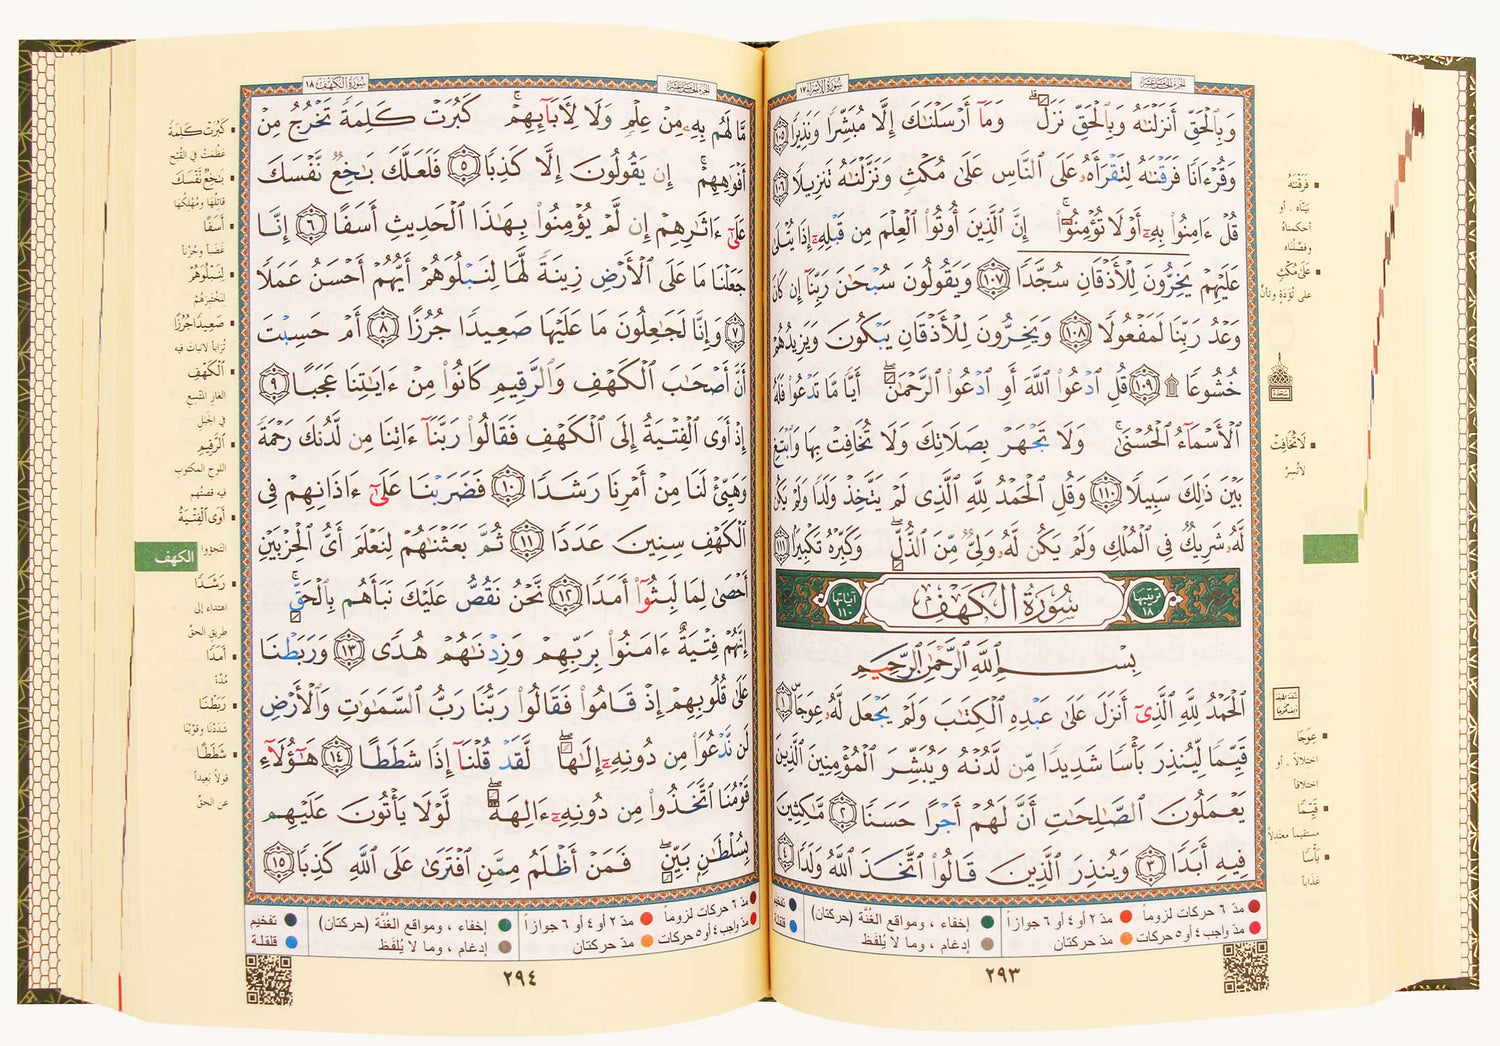 سُورَةُ الإِسْرَاء ١٧
وَبِٱلْحَقِّ أَنزَلْنَٰهُ وَبِٱلْحَقِّ نَزَلَ ۗ وَمَآ أَرْسَلْنَٰكَ إِلَّا مُبَشِّرًا وَنَذِيرًا ١٠٥
وَقُرْءَانًا فَرَقْنَٰهُ لِتَقْرَأَهُۥ عَلَى ٱلنَّاسِ عَلَىٰ مُكْثٍ وَنَزَّلْنَٰهُ تَنزِيلًا ١٠٦
قُلْ ءَامِنُوا۟ بِهِۦٓ أَوْ لَا تُؤْمِنُوٓا۟ ۚ إِنَّ ٱلَّذِينَ أُوتُوا۟ ٱلْعِلْمَ مِن قَبْلِهِۦٓ إِذَا يُتْلَىٰ
عَلَيْهِمْ يَخِرُّونَ لِلْأَذْقَانِ سُجَّدًا ١٠٧ وَيَقُولُونَ سُبْحَٰنَ رَبِّنَآ إِن كَانَ
وَعْدُ رَبِّنَا لَمَفْعُولًا ١٠٨ وَيَخِرُّونَ لِلْأَذْقَانِ يَبْكُونَ وَيَزِيدُهُمْ
خُشُوعًا ۩ ١٠٩ قُلِ ٱدْعُوا۟ ٱللَّهَ أَوِ ٱدْعُوا۟ ٱلرَّحْمَٰنَ ۖ أَيًّا مَّا تَدْعُوا۟ فَلَهُ
ٱلْأَسْمَآءُ ٱلْحُسْنَىٰ ۚ وَلَا تَجْهَرْ بِصَلَاتِكَ وَلَا تُخَافِتْ بِهَا وَٱبْتَغِ
بَيْنَ ذَٰلِكَ سَبِيلًا ١١٠ وَقُلِ ٱلْحَمْدُ لِلَّهِ ٱلَّذِى لَمْ يَتَّخِذْ وَلَدًا وَلَمْ يَكُن
لَّهُۥ شَرِيكٌ فِى ٱلْمُلْكِ وَلَمْ يَكُن لَّهُۥ وَلِىٌّ مِّنَ ٱلذُّلِّ ۖ وَكَبِّرْهُ تَكْبِيرًۢا ١١١
ترتيبها ١٨ سُورَةُ الكَهْف آياتها ١١٠
بِسْمِ ٱللَّهِ ٱلرَّحْمَٰنِ ٱلرَّحِيمِ
ٱلْحَمْدُ لِلَّهِ ٱلَّذِىٓ أَنزَلَ عَلَىٰ عَبْدِهِ ٱلْكِتَٰبَ وَلَمْ يَجْعَل لَّهُۥ عِوَجَا ۜ ١
قَيِّمًا لِّيُنذِرَ بَأْسًا شَدِيدًا مِّن لَّدُنْهُ وَيُبَشِّرَ ٱلْمُؤْمِنِينَ ٱلَّذِينَ
يَعْمَلُونَ ٱلصَّٰلِحَٰتِ أَنَّ لَهُمْ أَجْرًا حَسَنًا ٢ مَّٰكِثِينَ
فِيهِ أَبَدًا ٣ وَيُنذِرَ ٱلَّذِينَ قَالُوا۟ ٱتَّخَذَ ٱللَّهُ وَلَدًا ٤
فَرَقْنَٰهُ
بيّناه . أو
أحكمناه
وفصّلناه
عَلَىٰ مُكْثٍ
على تُؤَدَةٍ وتأنٍّ
سجدة
لَا تُخَافِتْ
لا تُسِرَّ
عِوَجَا
اختلالاً . أو
اختلافاً
قَيِّمًا
مستقيماً معتدلاً
بَأْسًا
عَذَاباً
مدّ ٦ حركات لزوماً
مدّ ٢ أو ٤ أو ٦ جوازاً
إخفاء ، ومواقع الغُنَّة (حركتان)
تفخيم
مدّ واجب ٤ أو ٥ حركات
مدّ حركتان
إدغام ، وما لا يُلفَظ
قلقلة
٢٩٣
سُورَةُ الكَهْف ١٨
مَّا لَهُم بِهِۦ مِنْ عِلْمٍ وَلَا لِءَابَآئِهِمْ ۚ كَبُرَتْ كَلِمَةً تَخْرُجُ مِنْ
أَفْوَٰهِهِمْ ۚ إِن يَقُولُونَ إِلَّا كَذِبًا ٥ فَلَعَلَّكَ بَٰخِعٌ نَّفْسَكَ
عَلَىٰٓ ءَاثَٰرِهِمْ إِن لَّمْ يُؤْمِنُوا۟ بِهَٰذَا ٱلْحَدِيثِ أَسَفًا ٦ إِنَّا
جَعَلْنَا مَا عَلَى ٱلْأَرْضِ زِينَةً لَّهَا لِنَبْلُوَهُمْ أَيُّهُمْ أَحْسَنُ عَمَلًا
٧ وَإِنَّا لَجَٰعِلُونَ مَا عَلَيْهَا صَعِيدًا جُرُزًا ٨ أَمْ حَسِبْتَ
أَنَّ أَصْحَٰبَ ٱلْكَهْفِ وَٱلرَّقِيمِ كَانُوا۟ مِنْ ءَايَٰتِنَا عَجَبًا ٩
إِذْ أَوَى ٱلْفِتْيَةُ إِلَى ٱلْكَهْفِ فَقَالُوا۟ رَبَّنَآ ءَاتِنَا مِن لَّدُنكَ رَحْمَةً
وَهَيِّئْ لَنَا مِنْ أَمْرِنَا رَشَدًا ١٠ فَضَرَبْنَا عَلَىٰٓ ءَاذَانِهِمْ فِى
ٱلْكَهْفِ سِنِينَ عَدَدًا ١١ ثُمَّ بَعَثْنَٰهُمْ لِنَعْلَمَ أَىُّ ٱلْحِزْبَيْنِ
أَحْصَىٰ لِمَا لَبِثُوٓا۟ أَمَدًا ١٢ نَّحْنُ نَقُصُّ عَلَيْكَ نَبَأَهُم بِٱلْحَقِّ ۚ
إِنَّهُمْ فِتْيَةٌ ءَامَنُوا۟ بِرَبِّهِمْ وَزِدْنَٰهُمْ هُدًى ١٣ وَرَبَطْنَا
عَلَىٰ قُلُوبِهِمْ إِذْ قَامُوا۟ فَقَالُوا۟ رَبُّنَا رَبُّ ٱلسَّمَٰوَٰتِ وَٱلْأَرْضِ
لَن نَّدْعُوَا۟ مِن دُونِهِۦٓ إِلَٰهًا ۖ لَّقَدْ قُلْنَآ إِذًا شَطَطًا ١٤ هَٰٓؤُلَآءِ
قَوْمُنَا ٱتَّخَذُوا۟ مِن دُونِهِۦٓ ءَالِهَةً ۖ لَّوْلَا يَأْتُونَ عَلَيْهِم
بِسُلْطَٰنٍۭ بَيِّنٍ ۖ فَمَنْ أَظْلَمُ مِمَّنِ ٱفْتَرَىٰ عَلَى ٱللَّهِ كَذِبًا ١٥
كَبُرَتْ كَلِمَةً
عَظُمَتْ في القُبْح
بَٰخِعٌ نَّفْسَكَ
قاتلها ومُهلِكها
أَسَفًا
غَضَباً وحُزْناً
لِنَبْلُوَهُمْ
لِنَختبرهُمْ
صَعِيدًا جُرُزًا
تُرَاباً لا نبات فيه
ٱلْكَهْفِ
الغار المتّسع
في الجبل
ٱلرَّقِيمِ
اللوح المكتوب
فيه قصتُهم
أَوَى ٱلْفِتْيَةُ
التجؤوا
رَشَدًا
اهتداء إلى
طريق الحقّ
أَمَدًا
مُدَّة
رَبَطْنَا
شَدَدْنا وقوَّيْنا
شَطَطًا
قولاً بَعيداً
عن الحقّ
الكهف
مدّ ٦ حركات لزوماً
مدّ ٢ أو ٤ أو ٦ جوازاً
إخفاء ، ومواقع الغُنَّة (حركتان)
تفخيم
مدّ واجب ٤ أو ٥ حركات
مدّ حركتان
إدغام ، وما لا يُلفَظ
قلقلة
٢٩٤